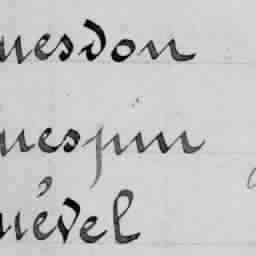 uesdon
uespin
uével